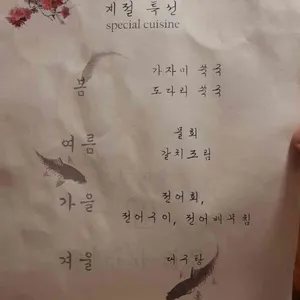 계절 특선
special cuisine
봄
가자미 쑥국
도다리 쑥국
여름
물회
갈치조림
가을
전어회,
전어구이, 전어배무침
겨울
대구탕